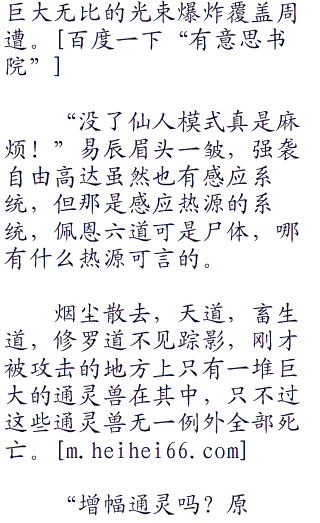 巨大无比的光束爆炸覆盖周
遭。[百度一下“有意思书
院”]
“没了仙人模式真是麻
烦！”易辰眉头一皱，强袭
自由高达虽然也有感应系
统，但那是感应热源的系
统，佩恩六道可是尸体，哪
有什么热源可言的。
烟尘散去，天道，畜生
道，修罗道不见踪影，刚才
被攻击的地方上只有一堆巨
大的通灵兽在其中，只不过
这些通灵兽无一例外全部死
亡。[m.heihei66.com]
“增幅通灵吗？原